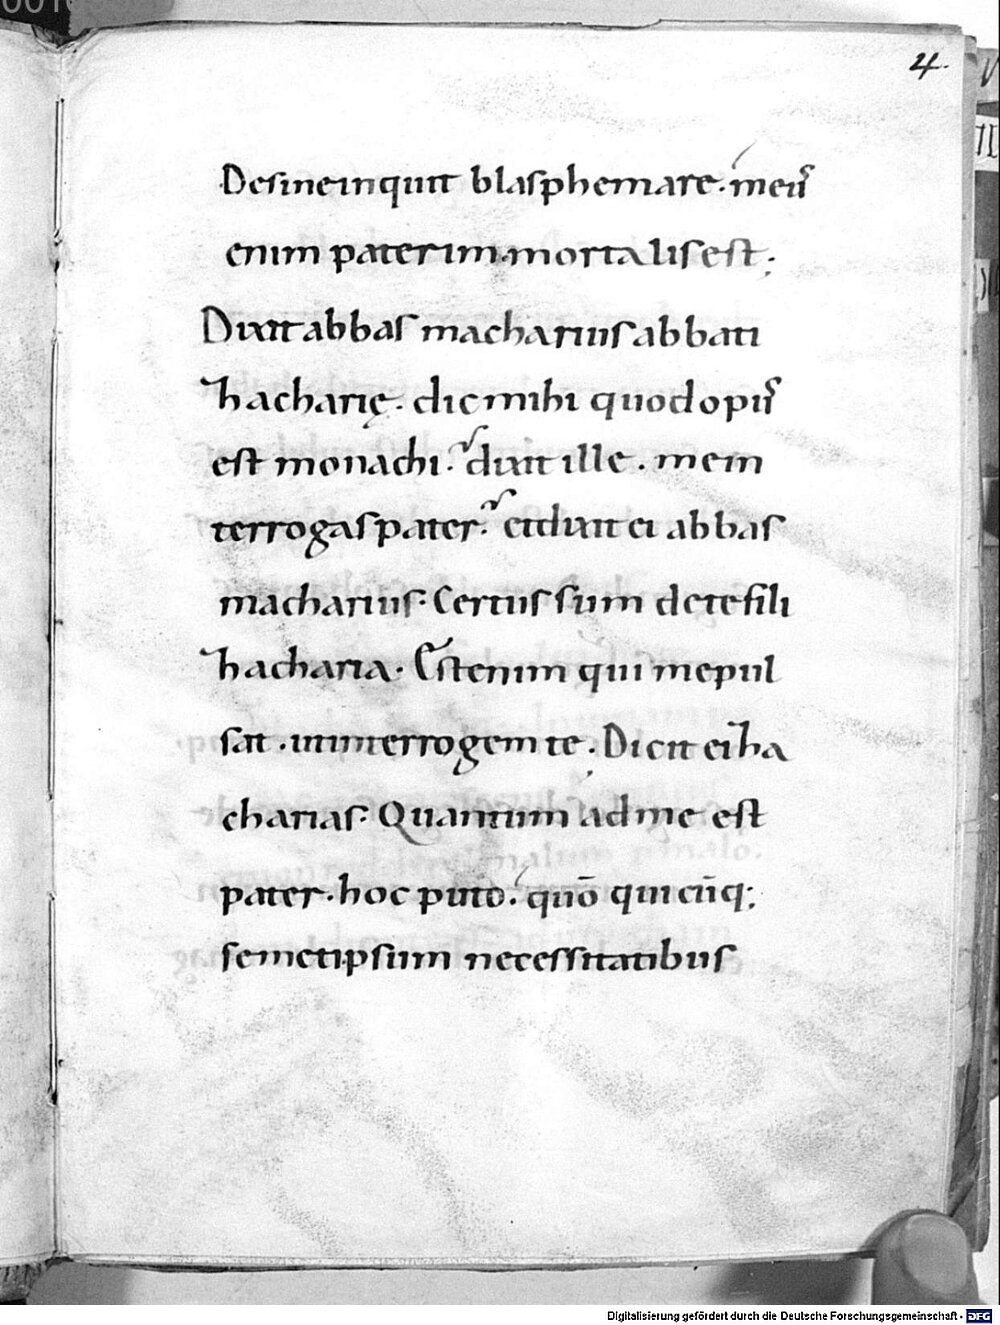 0010
4.
Desine inquit blasphemare. meus
enim pater immortalis est;
Dixit abbas macharius abbati
hacharię. dic mihi quod opus
est monachi. dixit ille. me in
terrogas pater. et dixit ei abbas
macharius. Certus sum de te fili
hacharia. Est enim qui me pul
sat. ut interrogem te. Dicit ei ha
charias. Quantum ad me est
pater. hoc puto. quō quicūq;
semetipsum necessitatibus
Digitalisierung gefördert durch die Deutsche Forschungsgemeinschaft - DFG